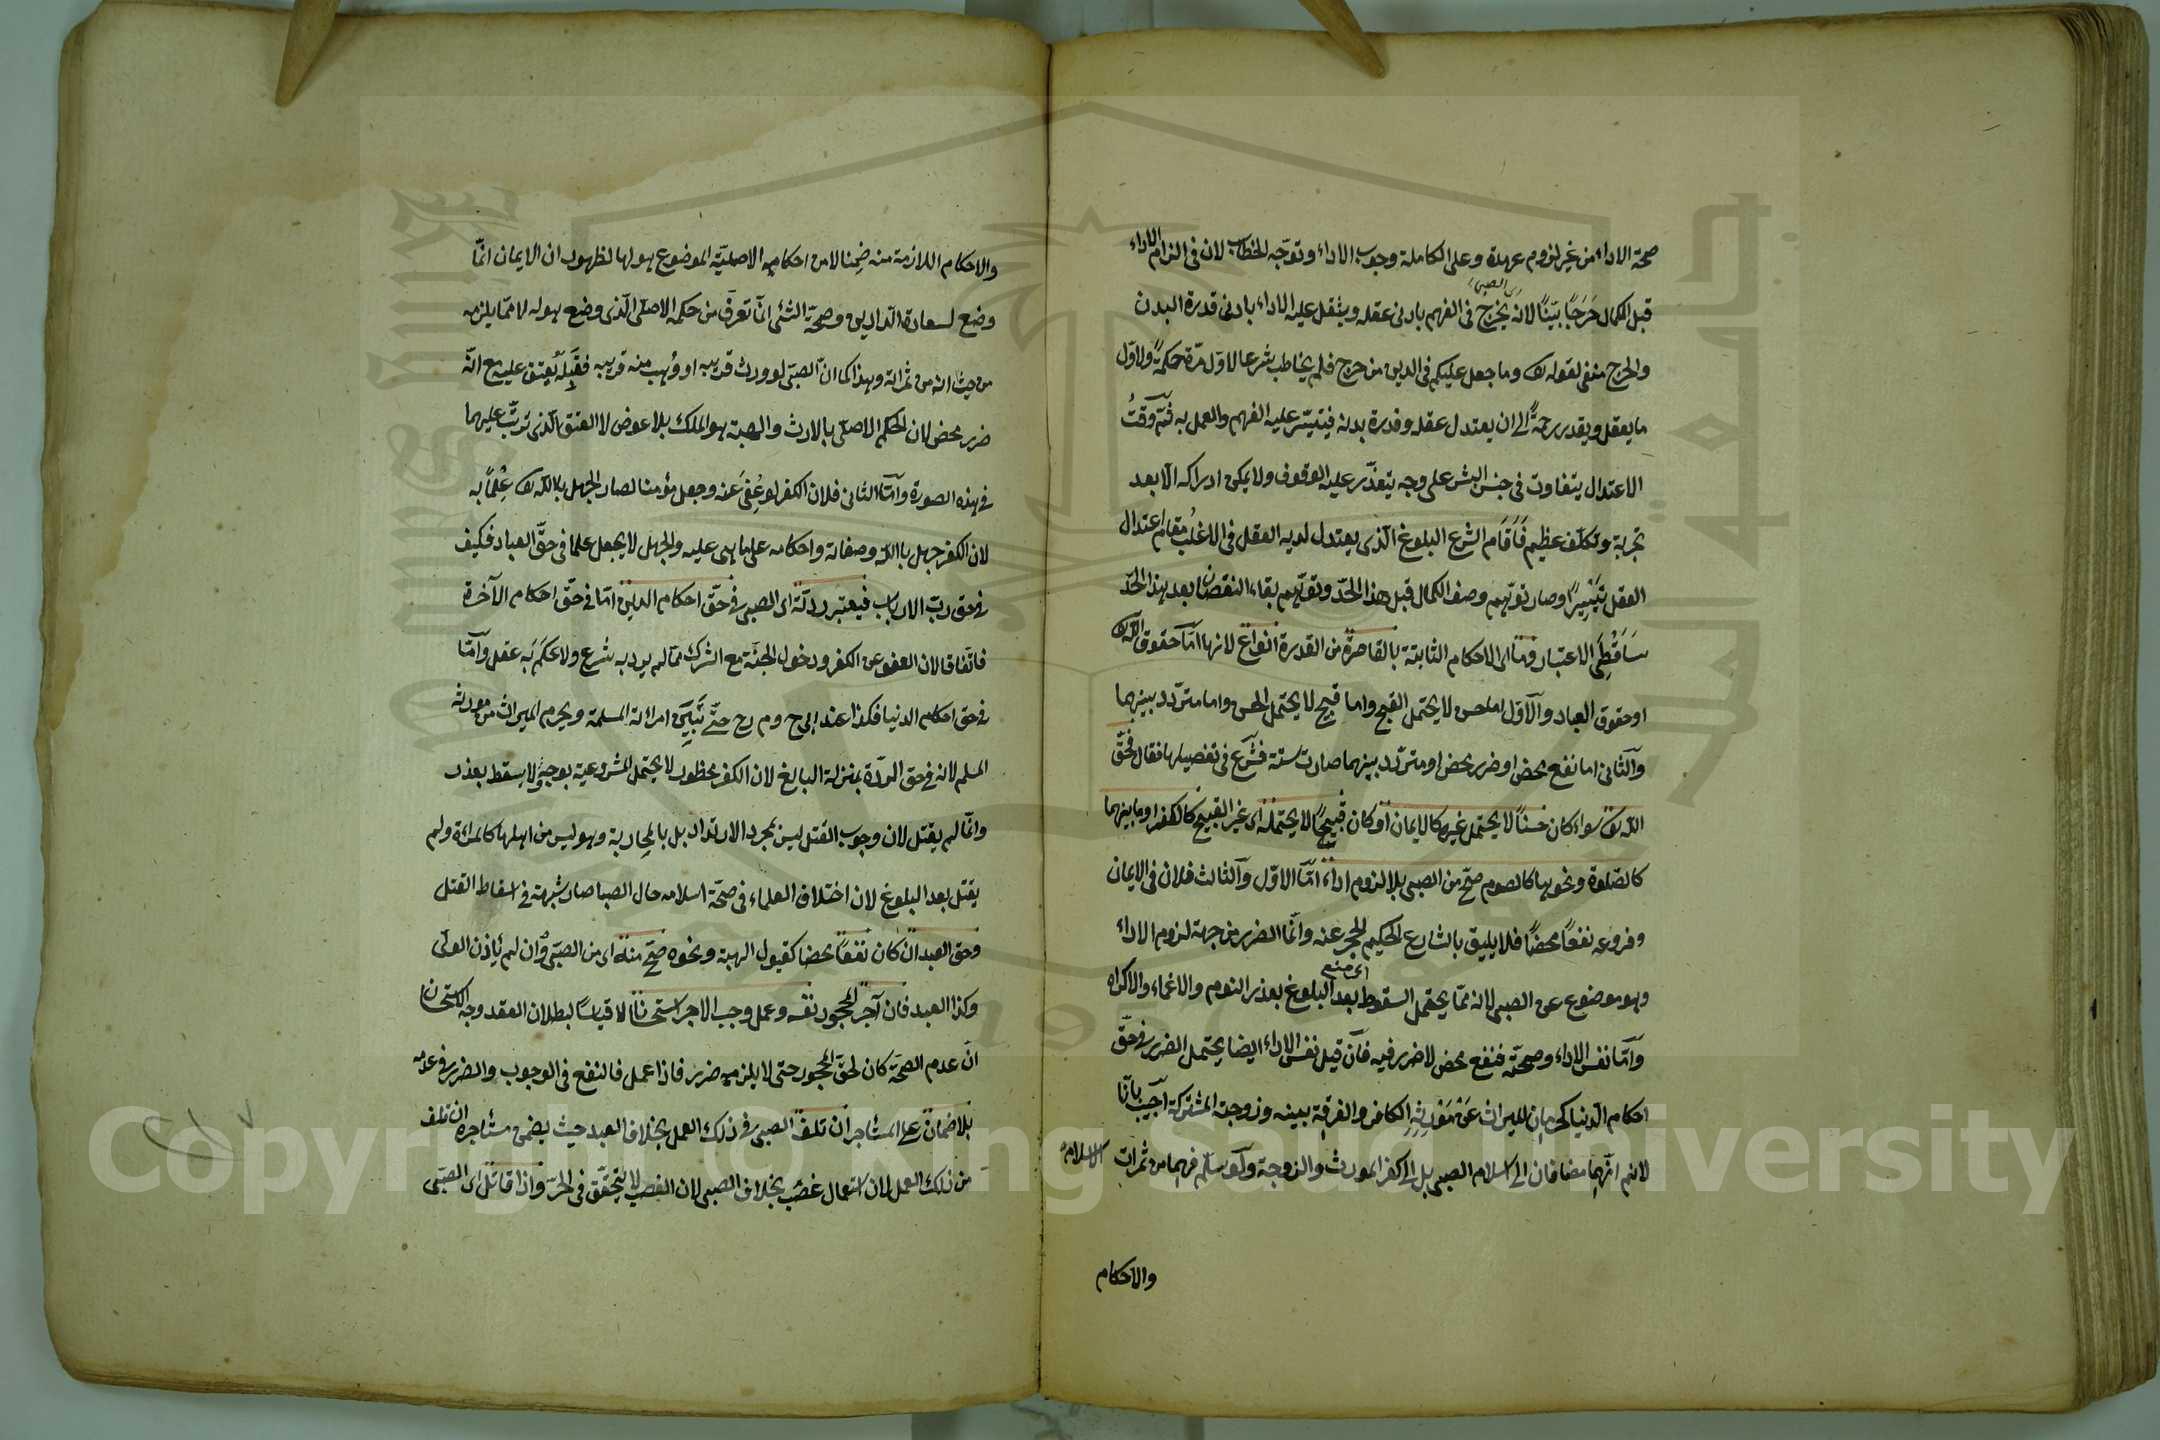 صحة الاداء من غير لزوم عهدة وعلى الكاملة وجوب الاداء وتوجه الخطاب لان في الزام الاداء
قبل الكمال حَرَجًا بَيِّنًا لانه يخرج في الفهم بادنى عقله ويثقل عليه الاداء بادنى قدرة البدن
اى الصبى
والحرج منفى لقوله تع وما جعل عليكم فى الدين من حرج فلم يخاطب شرعا لاول مرة حكمةً ولاول
ما يعقل ويقدر رحمةً الى ان يعتدل عقله وقدرة بدنه فيتيسّر عليه الفهم والعمل به ثم وقتُ
الاعتدال يتفاوت فى جنس البشر على وجه يتعذّر عليه الوقوف ولا يمكن ادراكه الا بعد
تجربة وتكلّف عظيم فَاَقَام الشرع البلوغ الذى يعتدل لديه العقل فى الاغلب مقام اعتدال
العقل تَيْسِيرًا وصار توهّم وصف الكمال قبل هذا الحدّ وتوهّم بقاء النقصان بعد هذا الحدّ
سَاقطَى الاعتبار وما اى الاحكام الثابتة بالقاصرة من القدرة انواع لانها اما حقوق الله تع
او حقوق العباد والاوّل اما حسن لا يحتمل القبح واما قبيح لا يحتمل الحسن واما متردّد بينهما
والثانى اما نفع محض او ضرر محض او متردّد بينهما صارت ستة فشرع فى تفصيلها فقال فحقّ
الله تع سواء كان حسنًا لا يحتمل غيره كالايمان او كان قبيحًا لا يحتمله اى غير القبيح كالكفر او ما بينهما
كالصّلوة ونحوها كالصوم صحّ من الصبى بلا لزوم اداء امّا الاوّل والثالث فلان فى الايمان
وفروعه نفعًا محضًا فلا يليق بالشارع الحكيم الحجر عنه وانّما الضرر من جهة لزوم الاداء
وهو موضوع عن الصبى لانه ممّا يحتمل السقوط بعد البلوغ بعذر النوم والاغماء والاكراه
وَاَمّا نفس الاداء وصحته فنفع محض لا ضرر فيه فان قيل نفس الاداء ايضا يحتمل الضرر فى حقّ
احكام الدنيا كحرمان الميراث عَنْ مُوَرِّثِهِ الكافر والفرقة بينه وزوجته المشركة اجيب بانّا
لا نم انهما مضافان الى اسلام الصبى بل الى كفر المورث والزوجة ولو سلّم فهما من ثمرات
الاسلام
والاحكام
والاحكام اللازمة منه ضِمنا لا من احكامه الاصليّة الموضوع هو لها لظهور ان الايمان انّما
وضع لسعادة الدارين وصحة الشئ انّما تعرف من حكمه الاصلى الّذى وضع هو له لا ممّا يلزمه
من حيث انه من ثمراته وهذا كما انّ الصبىّ لو ورث قريبه او وُهب منه قريبه فقَبِلَه يُعتق عليه مع انّه
ضرر محض لان الحكم الاصلى بالارث والهبة هو الملك بلا عوض لا العتق الّذى ترتّب عليهما
فى هذه الصورة وامّا الثانى فلان الكفر لو عُفِىَ عَنه وجعل مؤمنا لصار الجهل بالله تع عِلْمًا به
لان الكفر جهل بالله وصفاته واحكامه على ما هى عليه والجهل لا يجعل علما فى حقّ العباد فكيف
فى حق ربّ الارباب فيعتبر ردّته اى الصبى فى حقّ احكام الدارين امّا فى حقّ احكام الآخرة
فاتّفاقا لان العفو عن الكفر ودخول الجنّة مع الشرك ممّا لم يرد به شرع ولا حَكَمَ به عقل وامّا
فى حق احكام الدنيا فكذا عند ابى ح وم رح حتّى تَبِينَ امرأته المسلمة ويحرم الميراث من مورثه
المسلم لانه فى حق الردّة بمنزلة البالغ لان الكفر محظور لا يحتمل المشروعية بوجه ولا يسقط بعذر
وانّما لم يقتل لان وجوب القتل ليس بمجرد الارتداد بل بالمحاربة وهو ليس من اهلها كالمرأة ولم
يقتل بعد البلوغ لان اختلاف العلماء فى صحّة اسلامه حال الصبا صار شبهة فى اسقاط القتل
وحق العبد ان كان نفعًا محضا كقبول الهبة ونحوه صحّ منه اى من الصبىّ وان لم يأذن الولى
وكذا العبد فان آجر المحجور نفسه وعمل وجب الاجر استحسانًا لا قياسًا لبطلان العقد وجه الاستحسان
انّ عدم الصحّة كان لحقّ المحجور حتى لا يلزمه ضرر فاذا عمل فالنفع فى الوجوب والضرر فى عدمه
بلا ضمان على المستأجر ان تلف الصبى فى ذلك العمل بخلاف العبد حيث يضمن مستأجره ان تلف
من ذلك العمل لان استعمال غصب بخلاف الصبى لان الغصب لا يتحقّق فى الحرّ واذا قاتل اى الصبّى